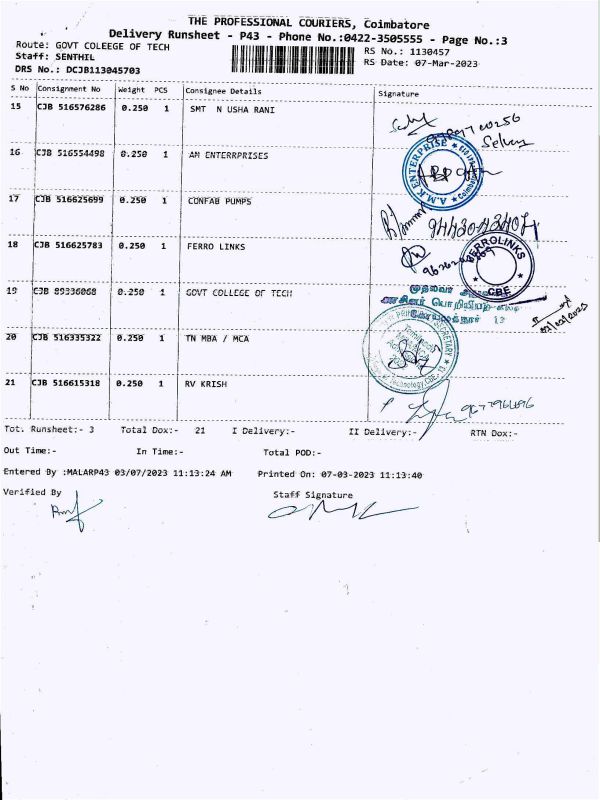 THE PROFESSIONAL COURIERS, Coimbatore
Delivery Runsheet - P43 - Phone No.:0422-3505555 - Page No.:3
Route: GOVT COLEEGE OF TECH
RS No.: 1130457
Staff: SENTHIL
RS Date: 07-Mar-2023
DRS No.: DCJB113045703
S No Consignment No Weight PCS Consignee Details Signature
15 CJB 516576286 0.250 1 SMT N USHA RANI
16 CJB 516554498 0.250 1 AM ENTERRPRISES
A.M.K ENTERPRISE
17 CJB 516625699 0.250 1 CONFAB PUMPS
18 CJB 516625783 0.250 1 FERRO LINKS
FERROLINKS
CBE
19 CJB 89336068 0.250 1 GOVT COLLEGE OF TECH
20 CJB 516335322 0.250 1 TN MBA / MCA
21 CJB 516615318 0.250 1 RV KRISH
Tot. Runsheet:- 3 Total Dox:- 21 I Delivery:- II Delivery:- RTN Dox:-
Out Time:- In Time:- Total POD:-
Entered By :MALARP43 03/07/2023 11:13:24 AM Printed On: 07-03-2023 11:13:40
Verified By Staff Signature